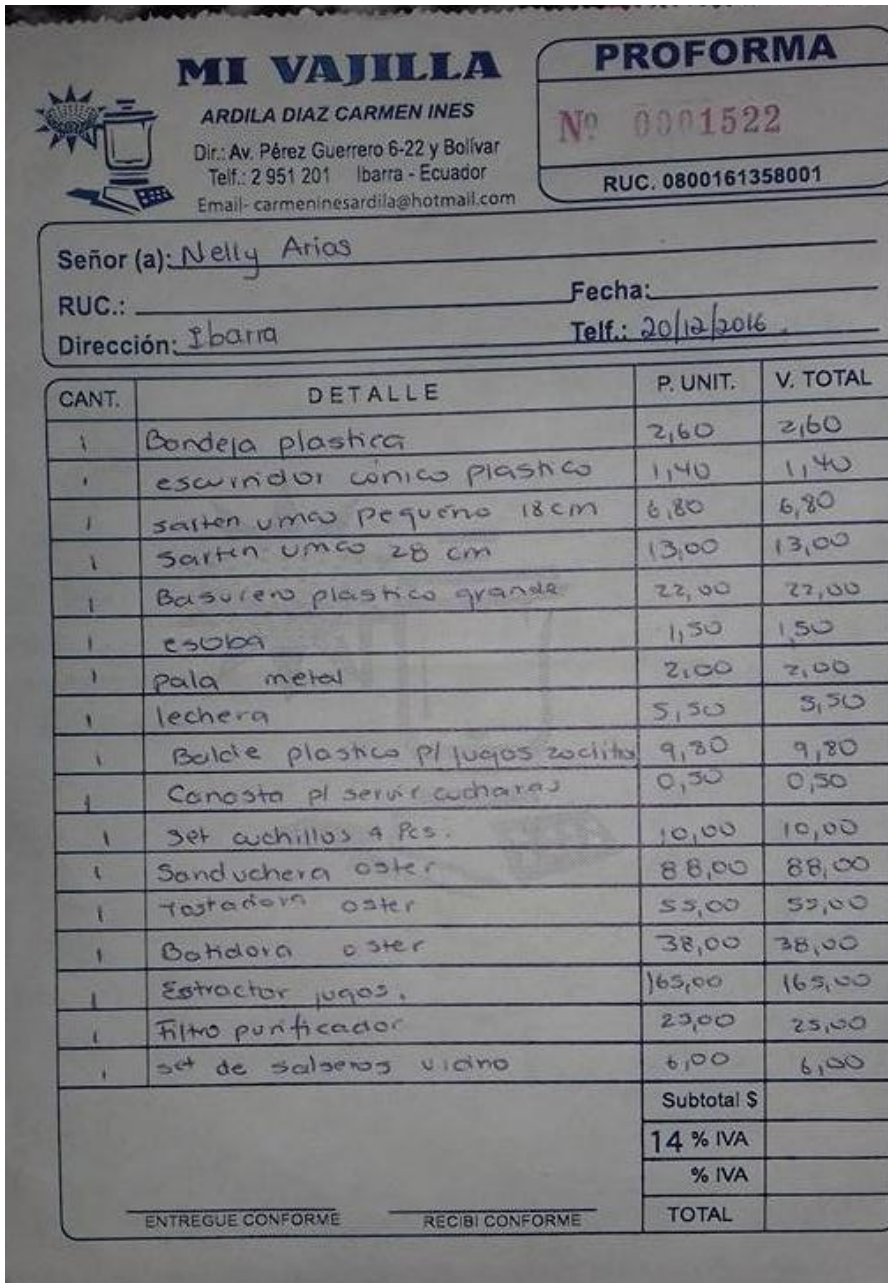 MI VAJILLA
ARDILA DIAZ CARMEN INES
Dir.: Av. Pérez Guerrero 6-22 y Bolívar
Telf.: 2 951 201 Ibarra - Ecuador
Email- carmeninesardila@hotmail.com
PROFORMA
Nº 0001522
RUC. 0800161358001
Señor (a): Nelly Arias
RUC.:
Fecha:
Dirección: Ibarra
Telf.: 20/12/2016
CANT. DETALLE P. UNIT. V. TOTAL
1 Bandeja plastica 2,60 2,60
1 escurridor cónico plastico 1,40 1,40
1 sarten umco pequeño 18 cm 6,80 6,80
1 Sarten umco 28 cm 13,00 13,00
1 Basurero plastico grande 22,00 22,00
1 escoba 1,50 1,50
1 pala metal 2,00 2,00
1 lechera 5,50 5,50
1 Balde plastico p/ jugos 9,80 9,80
1 Canasta p/ servir cucharas 0,50 0,50
1 set cuchillos 4 Pcs. 10,00 10,00
1 Sanduchera oster 88,00 88,00
1 Tostadora oster 55,00 55,00
1 Batidora oster 38,00 38,00
1 Estractor jugos. 165,00 165,00
1 Filtro purificador 25,00 25,00
1 set de salseros vidrio 6,00 6,00
Subtotal $
14 % IVA
% IVA
TOTAL
ENTREGUE CONFORME RECIBI CONFORME